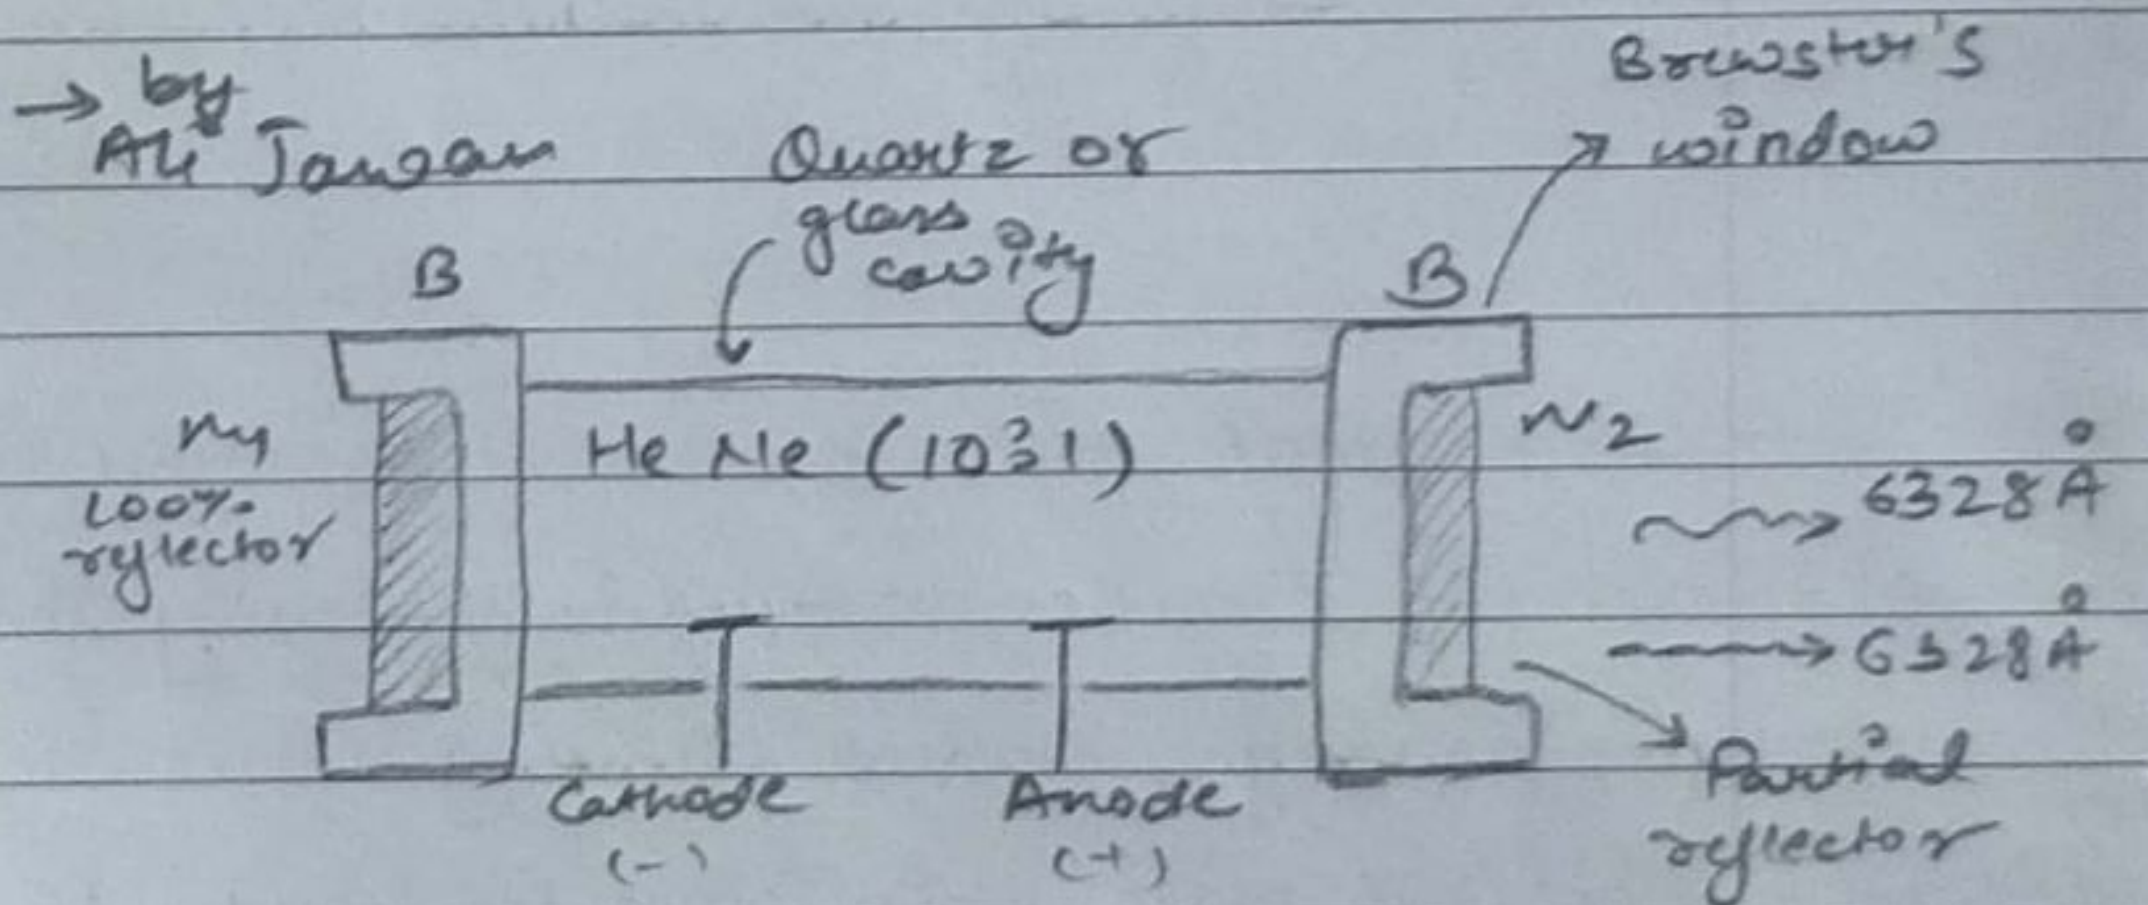 → by
Ali Javan
Quartz or
glass
cavity
Brewster's
window
B
B
M1
100%
reflector
He Ne (10:1)
M2
6328 Å
6328 Å
Cathode
(-)
Anode
(+)
Partial
reflector